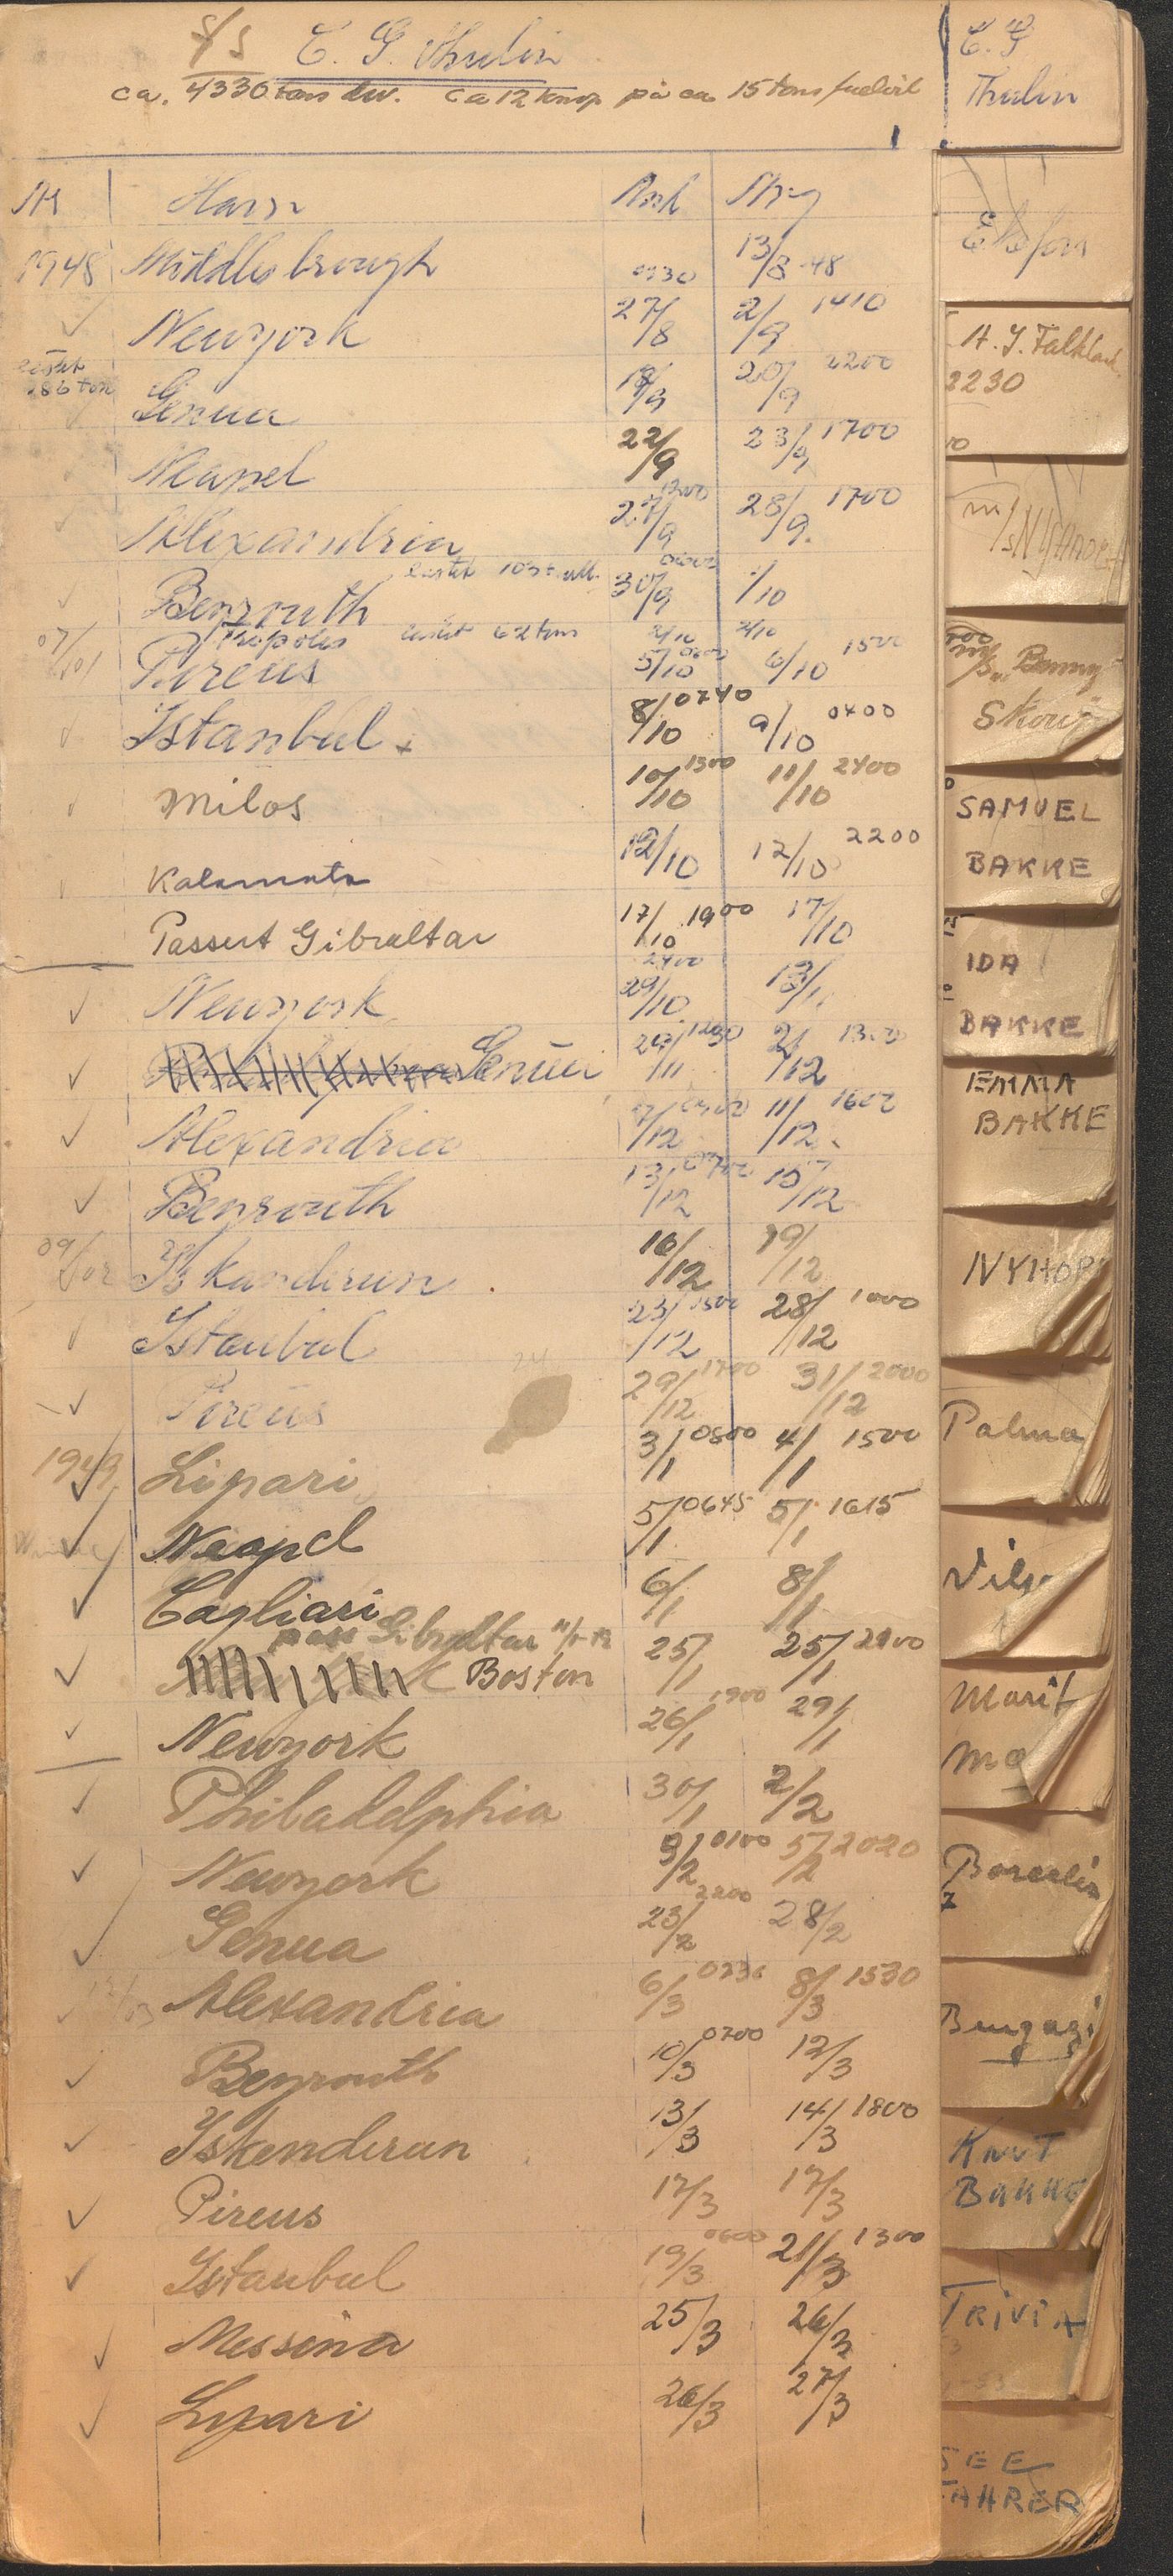 S/S C. G. Thulin
ca. 4330 tons dw. ca 12 knop på ca 15 tons fueloil
År Havn Ank Avg
1948 Middlesbrough 0930 13/8-48
Newyork 27/8 2/9 1410
lastet 286 ton Genua 18/9 20/9 2200
Neapel 22/9 23/9 1700
Alexandria 27/9 1200 28/9 1700
lastet
Beyrouth 30/9 1/10
Tripolis lastet 62 tons 2/10 2/10
Pireus 5/10 6/10 1500
Istanbul 8/10 0740 9/10 0400
Milos 10/10 1300 11/10 2400
Kalamata 12/10 12/10 2200
Passert Gibraltar 17/10 1900 17/10
Newyork 29/10 2400 13/11
Genua 29/11 1230 2/12
Alexandria 7/12 11/12 1600
Beyrouth 13/12 0700 15/12
Iskanderun 16/12 19/12
Istanbul 23/12 1500 28/12 1000
Pireus 29/12 1700 31/12 2000
1949 Lipari 3/1 0800 4/1 1500
Neapel 5/1 0645 5/1 1615
Cagliari 6/1 8/1
pass Gibraltar
Boston 25/1 25/1 2200
Newyork 26/1 1900 29/1
Philadelphia 30/1 2/2
Newyork 3/2 0100 5/2 2020
Genua 23/2 2200 28/2
Alexandria 6/3 0730 8/3 1530
Beyrouth 10/3 0700 12/3
Iskenderun 13/3 14/3 1800
Pireus 17/3 17/3
Istanbul 19/3 0600 21/3 1300
Messina 25/3 26/3
Lipari 26/3 27/3
C. G
Thulin
Ekefors
A. J. Falkland
2230
m/s NYHAUG
m/s Benny
Skou
SAMUEL
BAKKE
IDA
BAKKE
EMMA
BAKKE
NYHOR
Palma
Marit
Mæ
Borealis
Bengazi
Knut
Bakke
TRIVIA
SEE
FAHRER